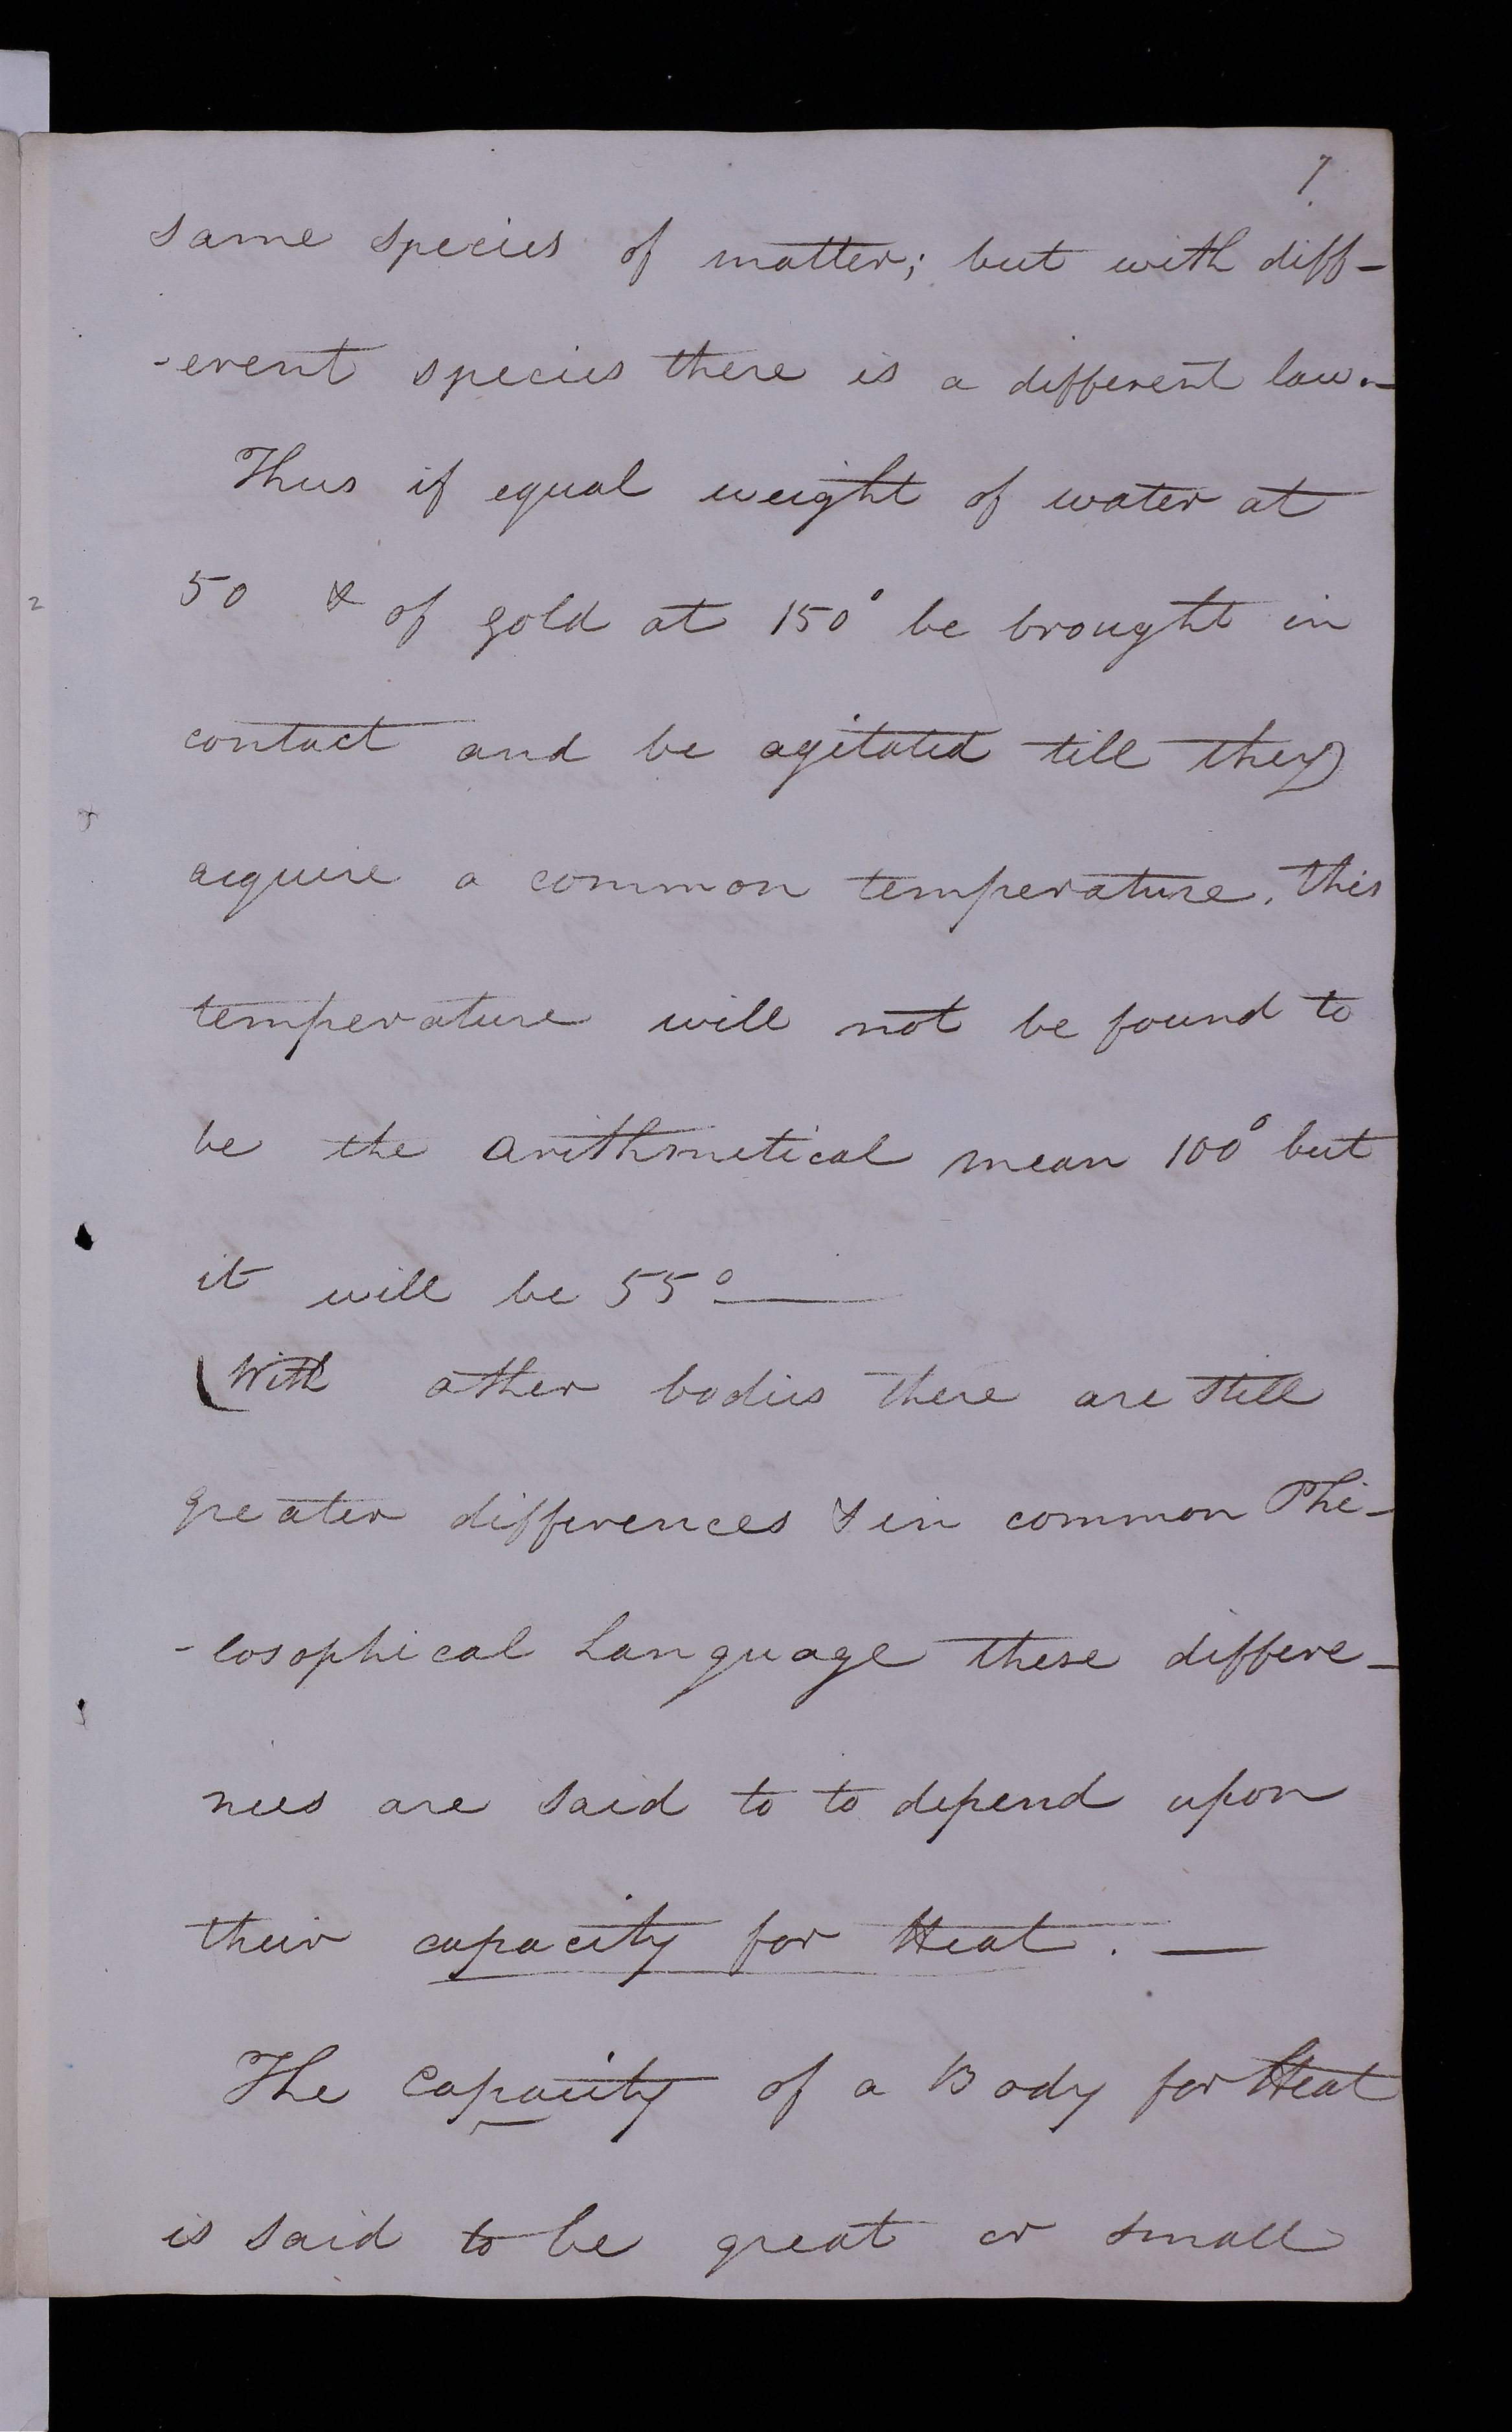 7
same species of matter; but with diff-
-erent species there is a different law.-
Thus if equal weight of water at
50 & of gold at 150° be brought in
contact and be agitated till they
acquire a common temperature. this
temperature will not be found to
be the arithmetical mean 100° but
it will be 55°—
(With other bodies there are still
greater differences & in common Phi-
-losophical Language these differe-
nces are said to to depend upon
their capacity for Heat. —
The Capacity of a Body for Heat
is said to be great or small